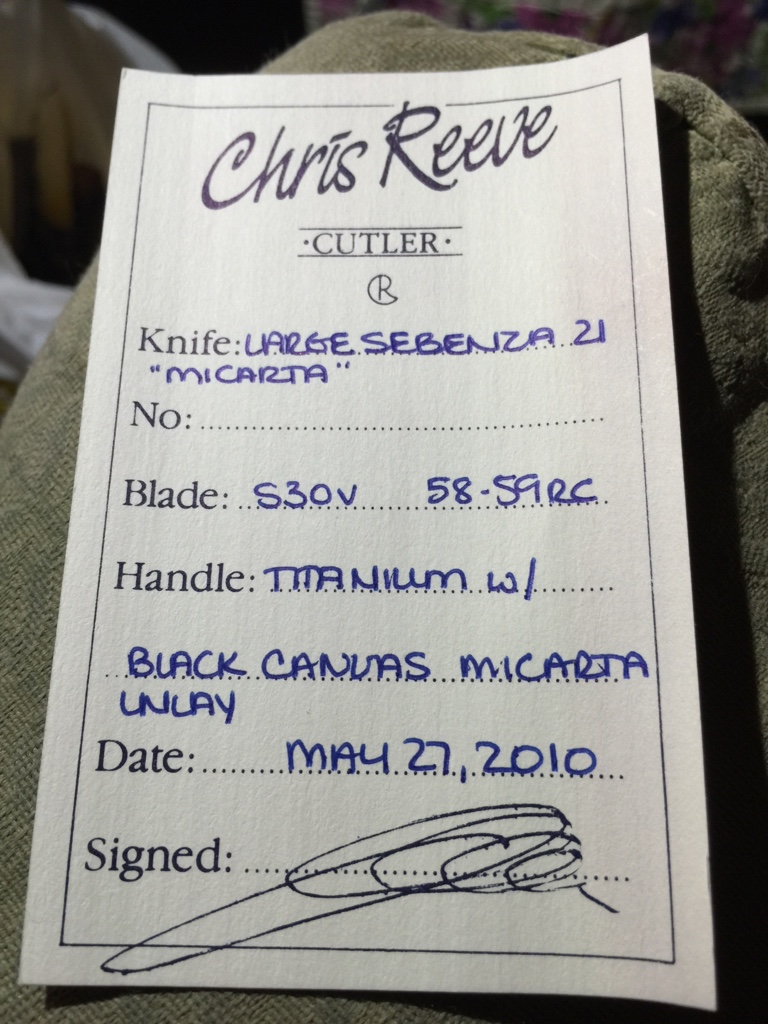 Chris Reeve
·CUTLER·
R
Knife: LARGE SEBENZA 21
"MICARTA"
No:
Blade: S30V 58-59RC
Handle: TITANIUM w/
BLACK CANVAS MICARTA
INLAY
Date: MAY 27, 2010
Signed: